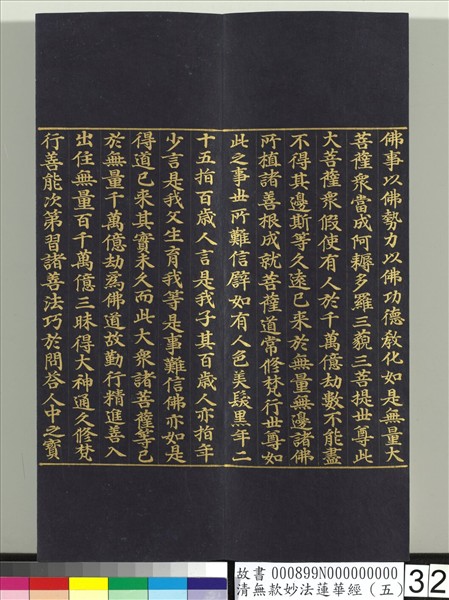 佛事以佛勢力以佛功德教化如是無量大
菩薩眾當成阿耨多羅三藐三菩提世尊此
大菩薩眾假使有人於千萬億劫數不能盡
不得其邊斯等久遠已來於無量無邊諸佛
所植諸善根成就菩薩道常修梵行世尊如
此之事世所難信譬如有人色美髮黑年二
十五指百歲人言是我子其百歲人亦指年
少言是我父生育我等是事難信佛亦如是
得道已來其實未久而此大眾諸菩薩等已
於無量千萬億劫為佛道故勤行精進善入
出住無量百千萬億三昧得大神通久修梵
行善能次第習諸善法巧於問答人中之寶
故書 000899N000000000
清無款妙法蓮華經(五)
32